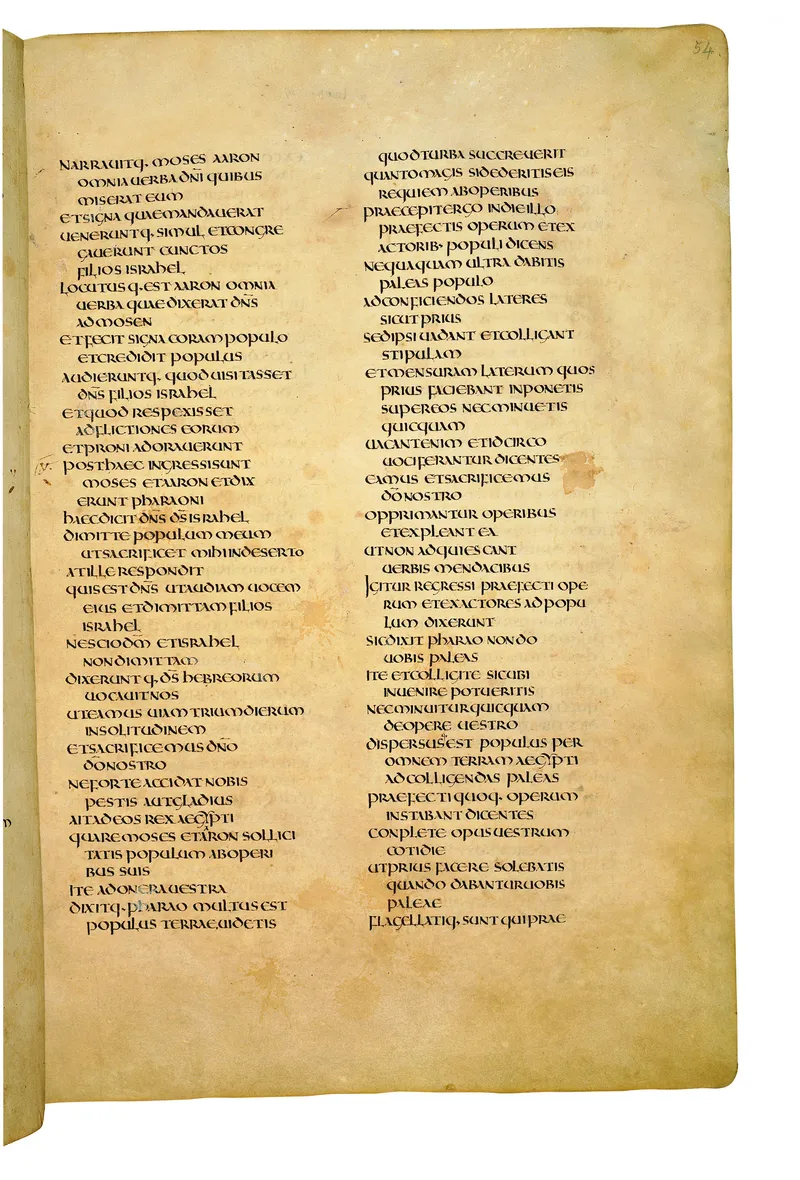 54
NARRAUITQ· MOSES AARON
OMNIA UERBA DN̄I QUIBUS
MISERAT EUM
ET SIGNA QUAE MANDAUERAT
UENERUNTQ· SIMUL ET CONGRE
GAUERUNT CUNCTOS
FILIOS ISRAHEL
LOCUTUSQ· EST AARON OMNIA
UERBA QUAE DIXERAT DN̄S
AD MOSEN
ET FECIT SIGNA CORAM POPULO
ET CREDIDIT POPULUS
AUDIERUNTQ· QUOD UISITASSET
DN̄S FILIOS ISRAHEL
ET QUOD RESPEXISSET
ADFLICTIONES EORUM
ET PRONI ADORAUERUNT
IX· POST HAEC INGRESSI SUNT
MOSES ET AARON ET DIX
ERUNT PHARAONI
HAEC DICIT DN̄S D̄S ISRAHEL
DIMITTE POPULUM MEUM
UT SACRIFICET MIHI IN DESERTO
AT ILLE RESPONDIT
QUIS EST DN̄S UT AUDIAM UOCEM
EIUS ET DIMITTAM FILIOS
ISRAHEL
NESCIO DN̄M ET ISRAHEL
NON DIMITTAM
DIXERUNTQ· D̄S HEBREORUM
UOCAUIT NOS
UT EAMUS UIAM TRIUM DIERUM
IN SOLITUDINEM
ET SACRIFICEMUS DN̄O
DŌ NOSTRO
NE FORTE ACCIDAT NOBIS
PESTIS AUT GLADIUS
AIT AD EOS REX AEGYPTI
QUARE MOSES ET AARON SOLLICI
TATIS POPULUM AB OPERI
BUS SUIS
ITE AD ONERA UESTRA
DIXITQ· PHARAO MULTUS EST
POPULUS TERRAE, UIDETIS
QUOD TURBA SUCCREUERIT
QUANTO MAGIS SI DEDERITIS EIS
REQUIEM AB OPERIBUS
PRAECEPIT ERGO IN DIE ILLO
PRAEFECTIS OPERUM ET EX
ACTORIB· POPULI DICENS
NEQUAQUAM ULTRA DABITIS
PALEAS POPULO
AD CONFICIENDOS LATERES
SICUT PRIUS
SED IPSI UADANT ET COLLIGANT
STIPULAM
ET MENSURAM LATERUM QUOS
PRIUS FACIEBANT INPONETIS
SUPER EOS NEC MINUETIS
QUICQUAM
UACANT ENIM ET IDCIRCO
UOCIFERANTUR DICENTES
EAMUS ET SACRIFICEMUS
DŌ NOSTRO
OPPRIMANTUR OPERIBUS
ET EXPLEANT EA
UT NON ADQUIESCANT
UERBIS MENDACIBUS
IGITUR REGRESSI PRAEFECTI OPE
RUM ET EXACTORES AD POPU
LUM DIXERUNT
SIC DIXIT PHARAO NON DO
UOBIS PALEAS
ITE ET COLLIGITE SICUBI
INUENIRE POTUERITIS
NEC MINUITUR QUICQUAM
DE OPERE UESTRO
DISPERSUSEST POPULUS PER
OMNEM TERRAM AEGYPTI
AD COLLIGENDAS PALEAS
PRAEFECTI QUOQ· OPERUM
INSTABANT DICENTES
CONPLETE OPUS UESTRUM
COTIDIE
UT PRIUS FACERE SOLEBATIS
QUANDO DABANTUR UOBIS
PALEAE
FLAGELLATIQ· SUNT QUI PRAE